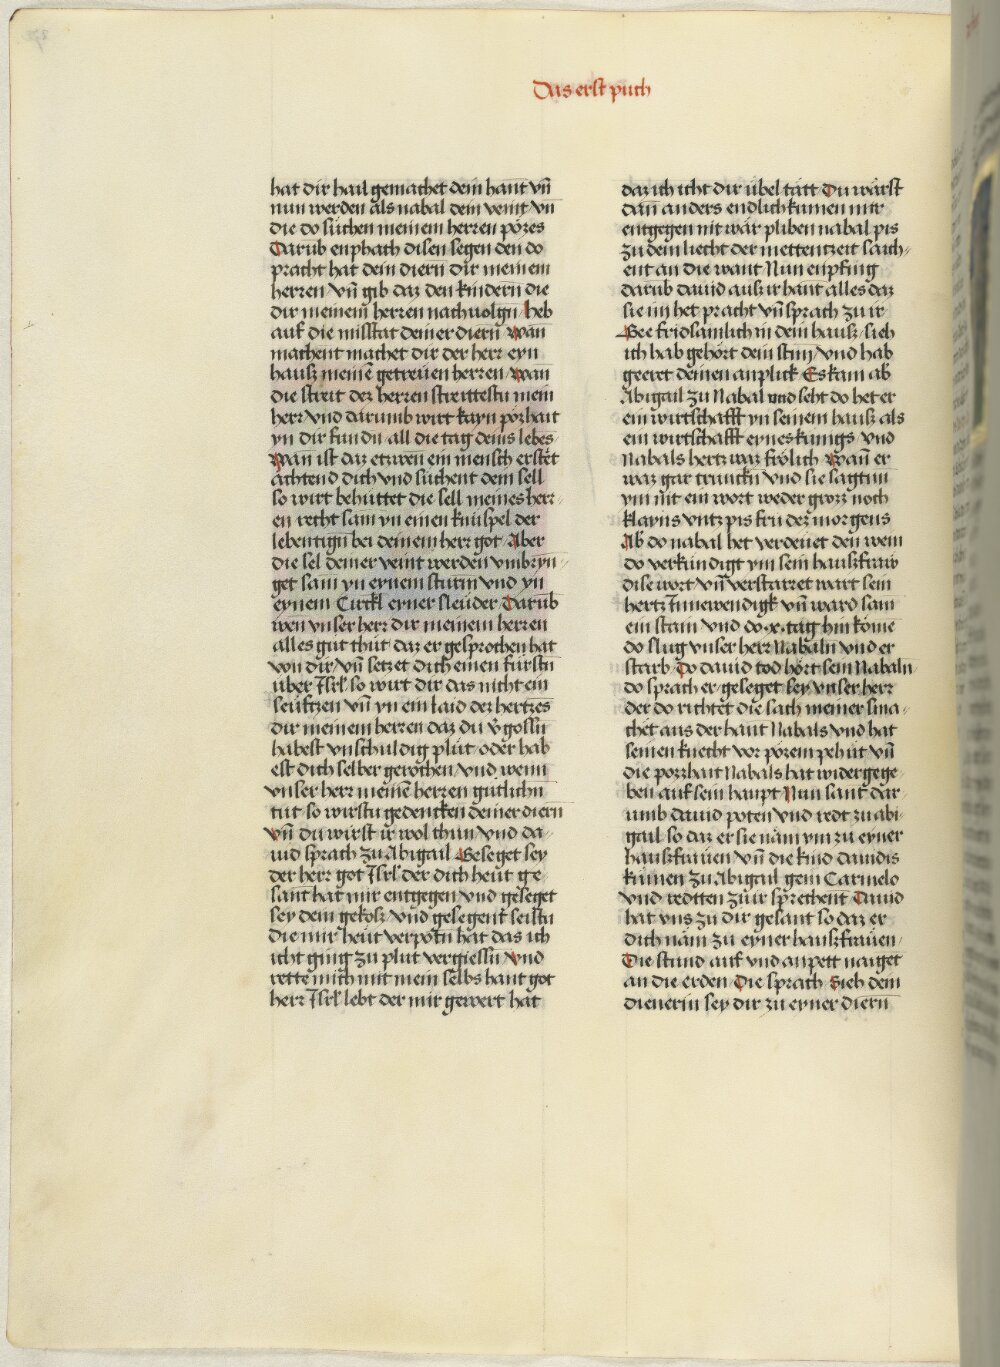 Das erst puch
hat dir hail gemachet dein hant vn̄
nun werden als nabal dein veint vn̄
die do sůchen meinem herren pözes
Darūb enphach disen segen den do
pracht hat dein diern dir meinem
herren vn̄ gib daz den kindern die
dir meinem herren nachuolgn heb
auf die misstat deiner diern wan
machent machet dir der herr eyn
hausz meinē getreuen herren wan
die streit dez herren streittestu mein
herr vnd darumb wirt kayn pözhait
yn dir fundn all die tag deins lebes
Wan ist daz etwen ein mensch erstet
ächtend dich vnd suchent dein sell
so wirt behüttet die sell meines herr-
en recht sam yn einen knüspel der
lebentign bei deinem herr got Aber
die sel deiner veint werden vmbryn-
get sam yn eynem sturm vnd yn
eynem Circkl eyner sleuder Darūb
wen vnser herr dir meinem herren
alles gut thüt daz er gesprochen hat
von dir vn̄ setzet dich einen fürstn
über Isrl' so wirt dir das nicht ein
seuftzen vn̄ yn ein laid dez hertzes
dir meinem herren daz du v̄gossn
habest vnschuldig plüt oder hab
est dich selber gerochen vnd wenn
vnser herr meinē herren gütlichn
tüt so wirstu gedencken deiner diern
vn̄ du wirst ir wol thun vnd da-
uid sprach zu Abigail Geseget sey
der herr got Isrl' der dich heüt ge-
sant hat mir entgegen vnd geseget
sey dein gekösz vnd gesegent seistu
die mir heüt verpotn hat das ich
icht ging zu plut vergiessn vnd
rette mich mit mein selbs hant got
herr Isrl' lebt der mir gewert hat
daz ich icht dir übel tätt Du wärst
dan̄ anders endlich kumen mir
entgegen nit wär pliben nabal pis
zu dem liecht der mettentzeit saich-
ent an die want Nun enpfing
darūb dauid ausz ir hant alles daz
sie im het pracht vn̄ sprach zu ir
Gee fridsamlich in dein hausz sich
ich hab gehört dein stim vnd hab
geeret deinen anplick Es kam ab
Abigail zu Nabal und seht do het er
ein wirtschafft yn seinem hausz als
ein wirtschafft eynes kunigs vnd
Nabals hertz waz frölich Wan̄ er
waz gar trunckn vnd sie sagt im
ym nit ein wort weder grozz noch
klayns vntz pis fru dez morgens
Ab do nabal het verdeuet den wein
do verkundigt ym sein hauszfraw
dise wort vn̄ verstarret wart sein
hertz Innewendigk vn̄ ward sam
ein stain vnd do .x. tag hin kōme
do slug vnser herr Nabaln vnd er
starb Do dauid tod hört sein Nabaln
do sprach er geseget sey vnser herr
der do richtet die sach meiner sma-
chet aus der hant Nabals vnd hat
seinen knecht vor pözem pehüt vn̄
die pozzhait Nabals hat wider gege-
ben auf sein haupt Nun sant dar-
umb dauid poten vnd redt zu abi-
gail so daz er sie näm ym zu eyner
hauszfrauen vn̄ die kind dauidis
kumen zu Abigail gein Carmelo
vnd redtten zu ir sprechent Dauid
hat vns zu dir gesant so daz er
dich näm zu eyner hauszfrauen
Die stund auf vnd anpett naiget
an die erden Die sprach Sich dein
dienerin sey dir zu eyner diern